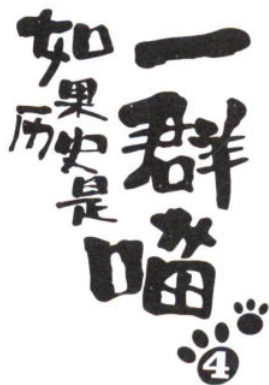 如果历史是
一群喵
4